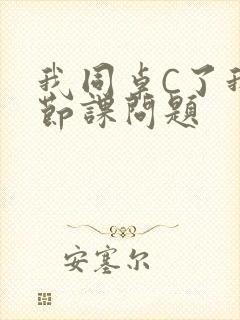 我同卓C了我
節課問題
安塞尔